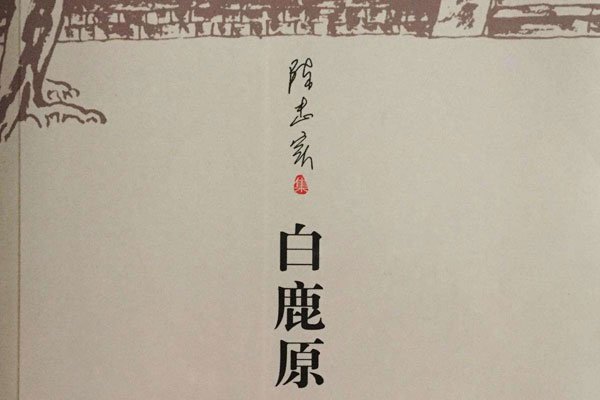 陈忠实
集
白鹿原